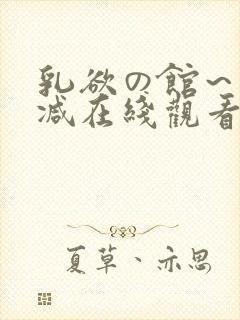 乳欲の館~
減在綫觀看
夏草、亦思